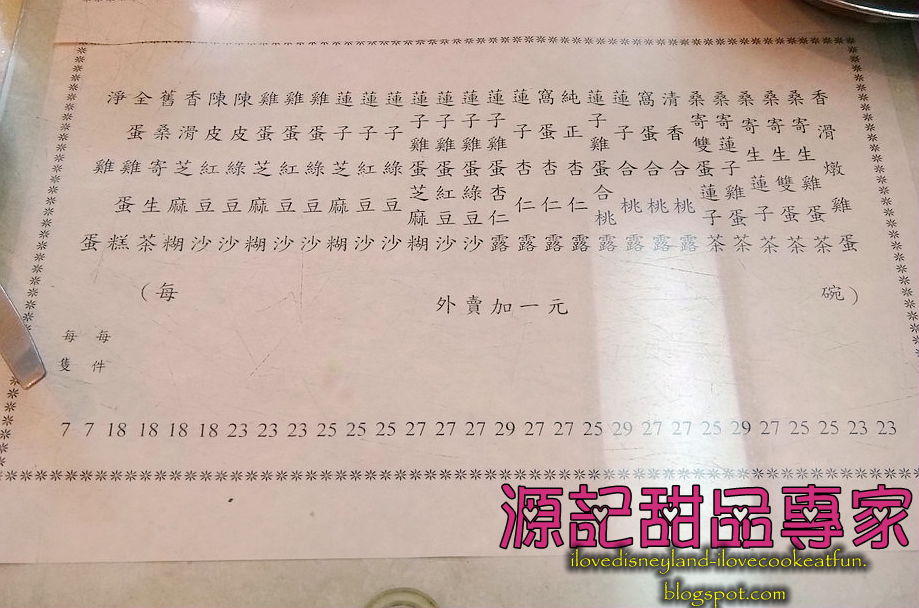 香滑燉雞蛋
桑寄生雞蛋茶
桑寄生雙蛋茶
桑寄生蓮子茶
桑寄蓮子雞蛋茶
桑寄雙蛋蓮子茶
清香合桃露
窩蛋合桃露
蓮子合桃露
蓮子雞蛋合桃露
純正杏仁露
窩蛋杏仁露
蓮子杏仁露
蓮子雞蛋杏仁露
蓮子雞蛋綠豆沙
蓮子雞蛋紅豆沙
蓮子雞蛋芝麻糊
蓮子綠豆沙
蓮子紅豆沙
蓮子芝麻糊
雞蛋綠豆沙
雞蛋紅豆沙
雞蛋芝麻糊
陳皮綠豆沙
陳皮紅豆沙
香滑芝麻糊
舊桑寄生茶
全蛋雞蛋糕
淨雞蛋
(每 碗)
外賣加一元
每件
每隻
7 7 18 18 18 18 23 23 23 25 25 25 27 27 27 29 27 27 25 29 27 27 25 29 27 25 25 23 23
源記甜品專家
ilovedisneyland-ilovecookeatfun.
blogspot.com